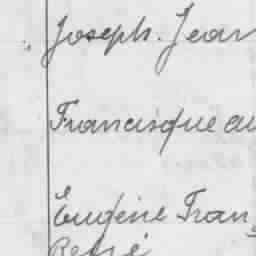 Joseph. Jean
Francisque au
Eugène Fran
René